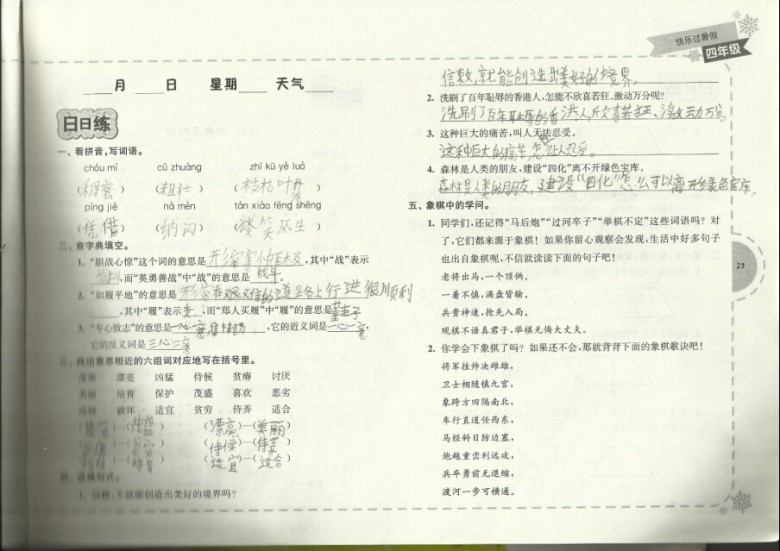 快乐过暑假
四年级
月 日 星期 天气
日日练
一、看拼音,写词语。
chóu mì cū zhuàng zhī kū yè luò
(稠密) (粗壮) ( )
píng jiè nà mèn tán xiào fēng shēng
(凭借) (纳闷) (谈笑风生)
二、查字典填空。
1. “胆战心惊”这个词的意思是 ,其中“战”表示
,而“英勇善战”中“战”的意思是 战斗。
2. “如履平地”的意思是形容在艰难的道路上行进很顺利
,其中“履”表示走,而“郑人买履”中“履”的意思是鞋子
3. “专心致志”的意思是 ,它的近义词是一心一意
它的反义词是三心二意
三、找出意思相近的六组词对应地写在括号里。
漂亮 凶猛 侍候 贫瘠 讨厌
美丽 培育 保护 茂盛 喜欢 恶劣
破坏 适宜 贫穷 侍弄 适合
(漂亮)—(美丽)
(侍候)—(侍弄)
(适宜)—(适合)
1. 信赖,不就能创造出美好的境界吗?
信赖,就能创造出美好的境界。
2. 洗刷了百年耻辱的香港人,怎能不欣喜若狂、激动万分呢?
洗刷了百年耻辱的香港人欣喜若狂、激动万分。
3. 这种巨大的痛苦,叫人无法忍受。
这种巨大的痛苦,怎么让人忍受。
4. 森林是人类的朋友,建设“四化”离不开绿色宝库。
森林是人类的朋友,建设“四化”怎么可以离开绿色宝库。
五、象棋中的学问。
1. 同学们,还记得“马后炮”“过河卒子”“举棋不定”这些词语吗?对
了,它们都来源于象棋!如果你留心观察会发现,生活中好多句子
也出自象棋呢,不信就读读下面的句子吧!
老将出马,一个顶俩。
一着不慎,满盘皆输。
兵贵神速,抢先入局。
观棋不语真君子,举棋无悔大丈夫。
2. 你学会下象棋了吗?如果还不会,那就背背下面的象棋歌诀吧!
将军拄帅决雌雄,
卫士相随镇九宫,
象跨方田隔南北,
车行直道任西东,
马经斜日防边塞,
炮越重峦利远攻,
兵卒勇前无退缩,
渡河一步可横通。
25